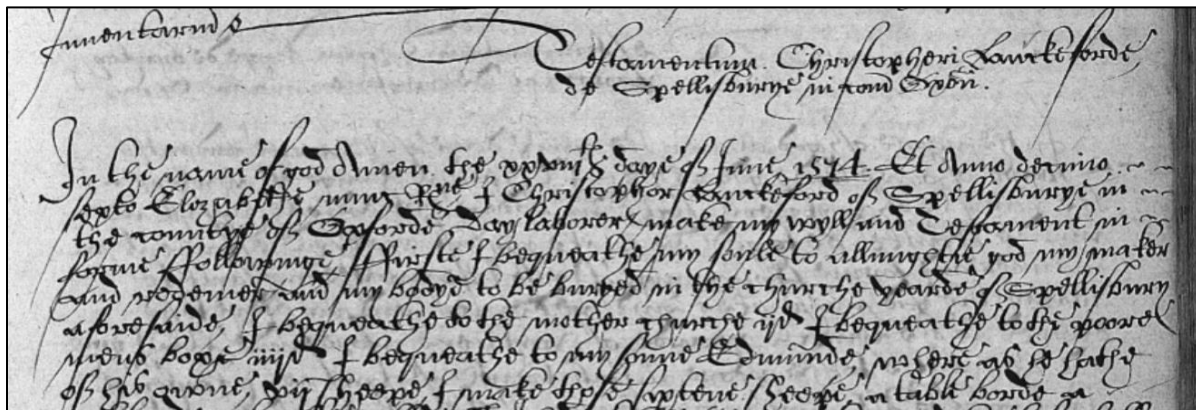 Inventarium
Testamentum Christopheri Lanckeforde
de Spellisburye in com Oxon.
In the name of god Amen the xxviiith daye of June 1574 Et Anno decimo
sexto Elozabethe nunc Rne I Christophor Lanckeford of Spellisburye in
the countye of Oxforde Day laborer make my wyll and Testament in
forme ffollowinge ffirste I bequeathe my soule to allmightie god my maker
and redemer and my bodye to be buryed in the churche yearde of Spellisbury
aforesaide, I bequeathe to the mother churche ijd I bequeathe to the poore
mens boxe iiijd I bequeathe to my sonne Edmunde, where as he hathe
of his owne, vij sheepe, I make those sixtene sheepe, a table borde a